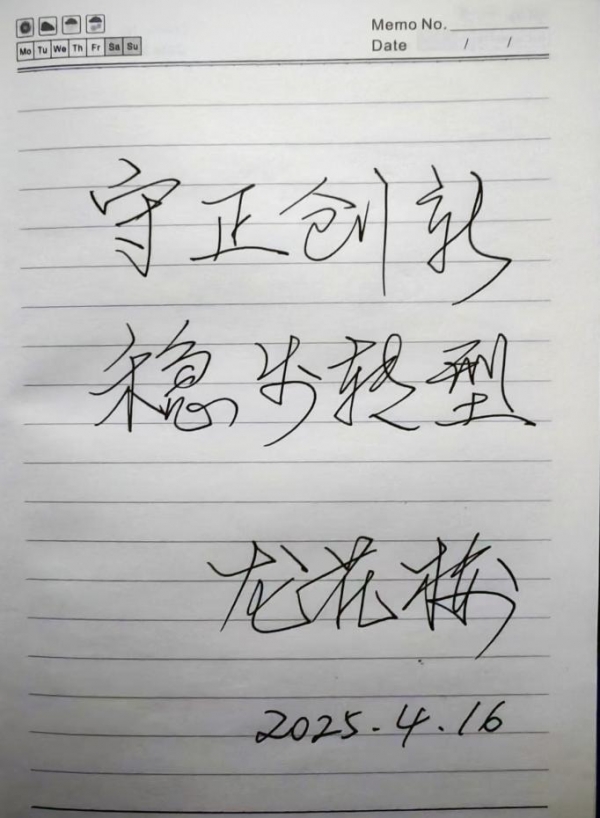 Memo No.
Mo Tu We Th Fr Sa Su
Date / /
守正创新
稳步转型
龙花梅
2025.4.16